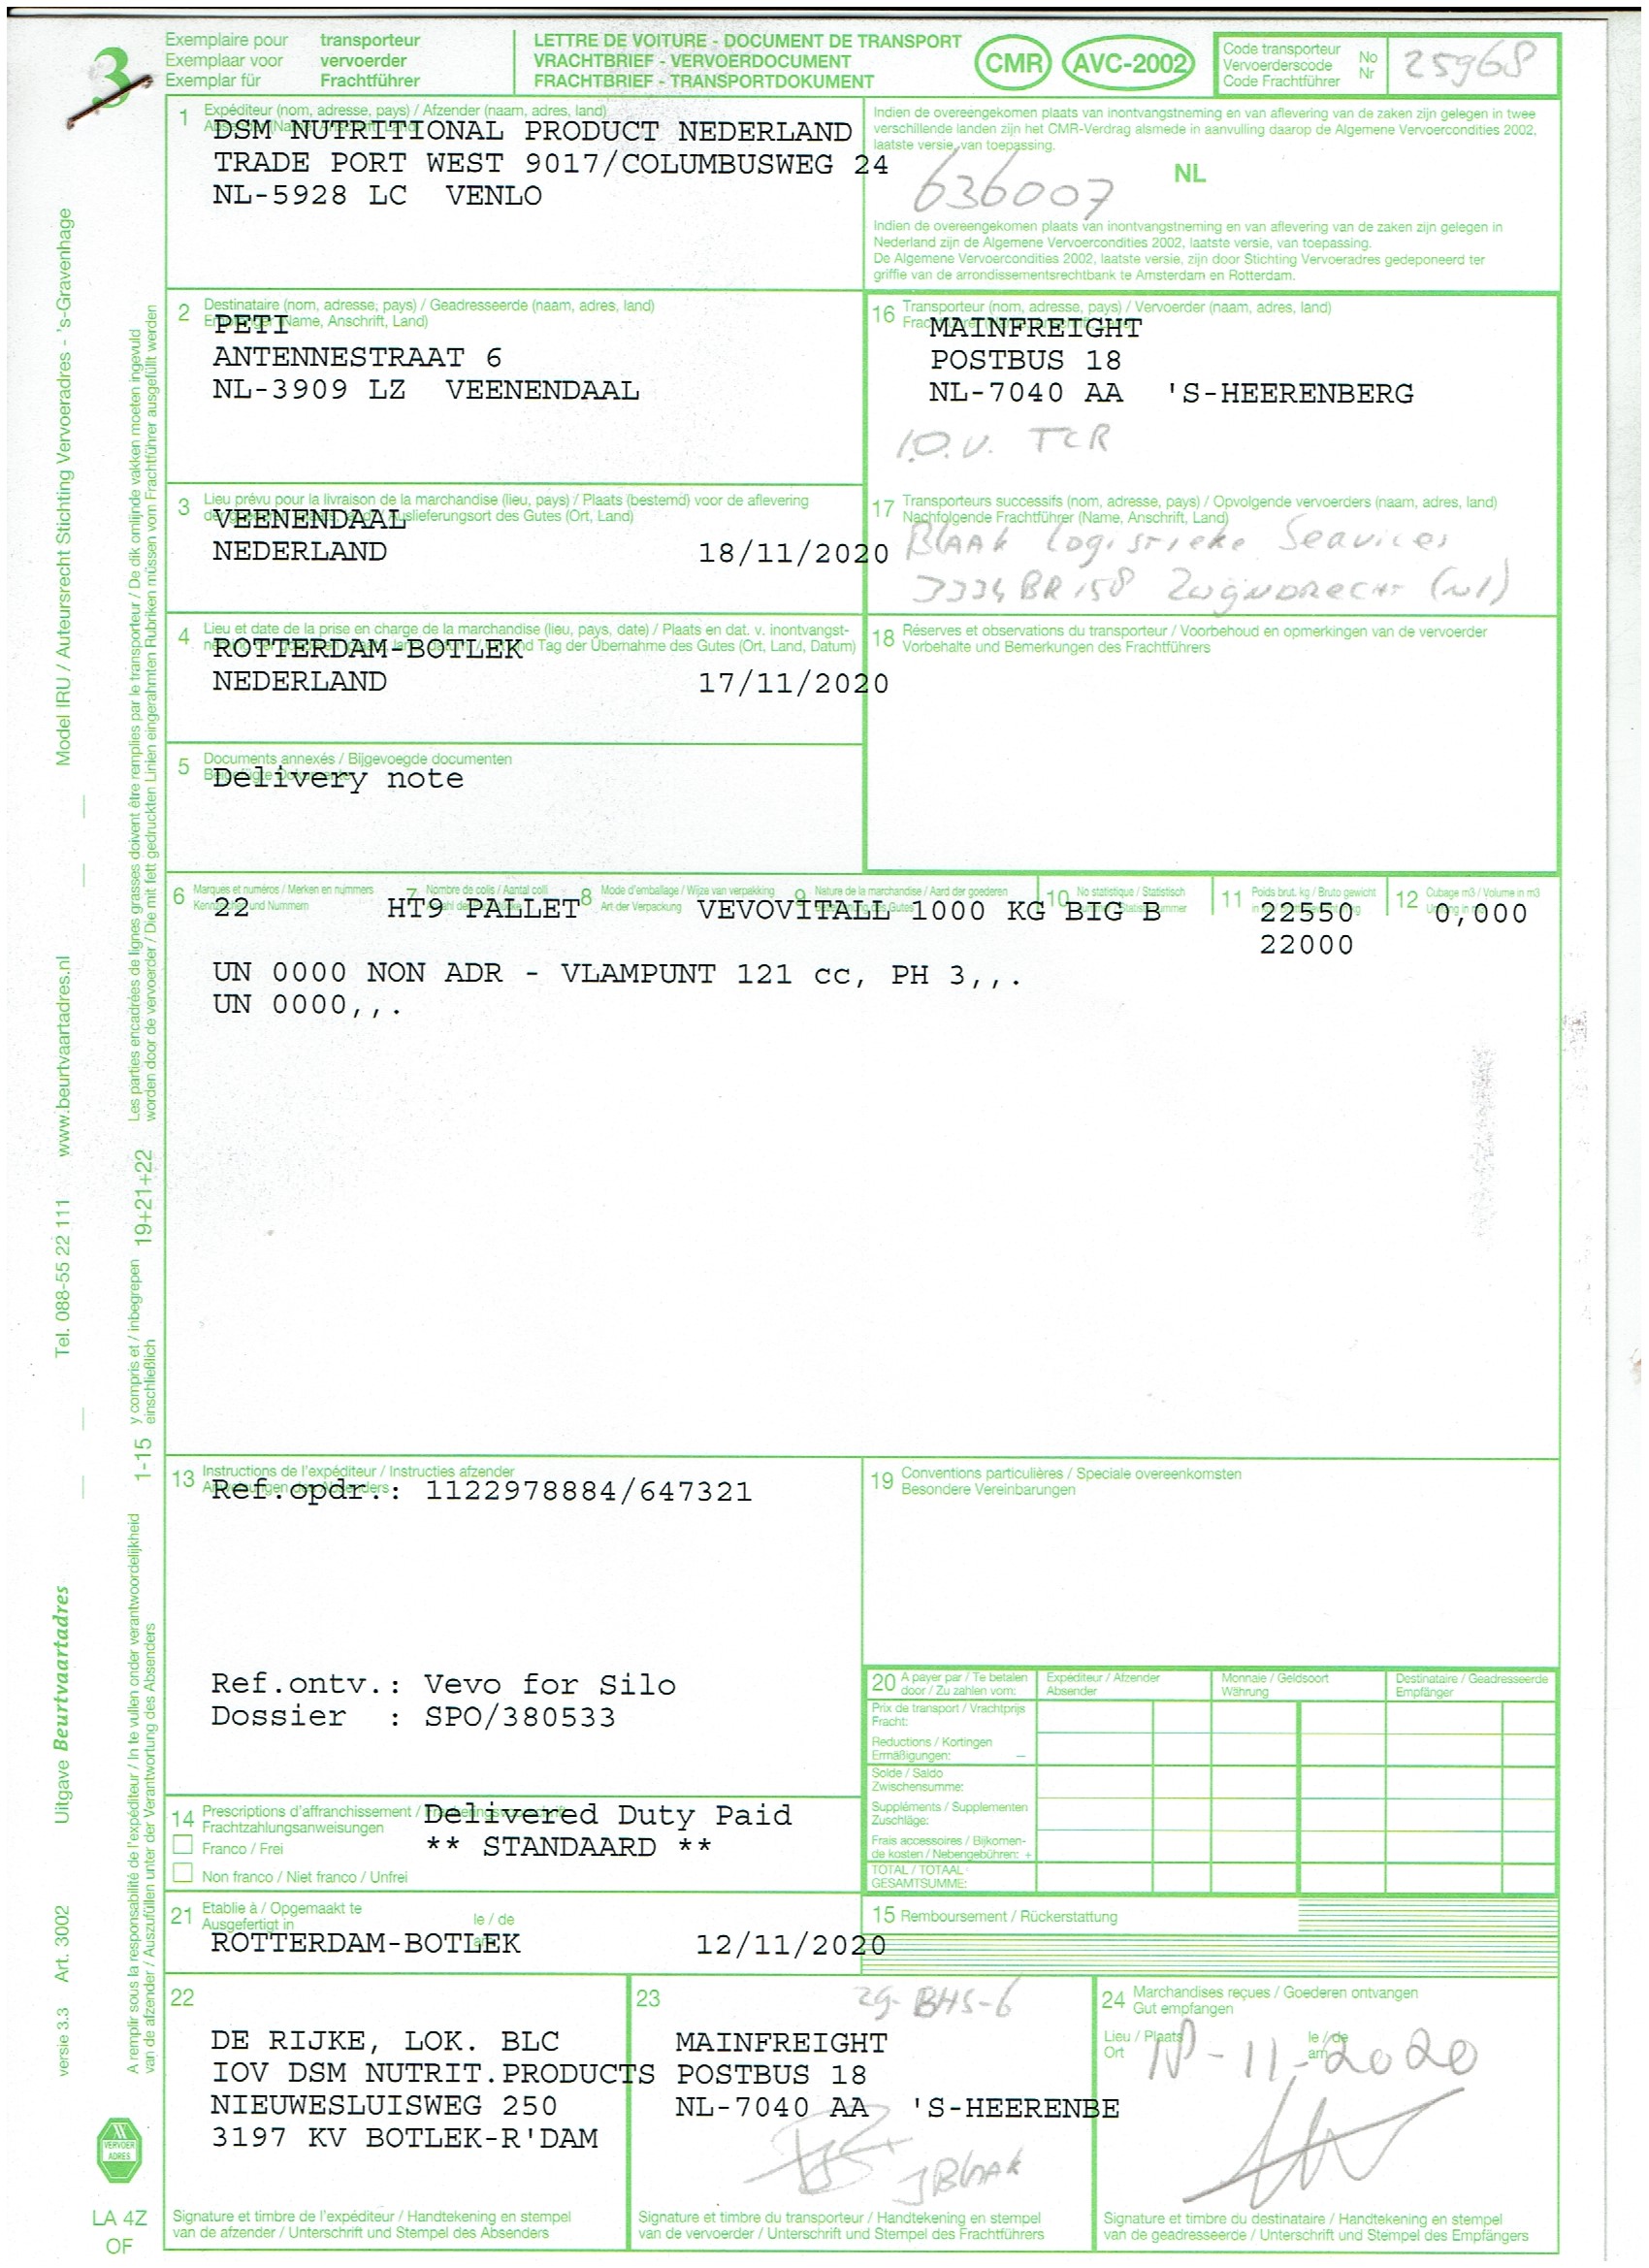 3
Exemplaire pour transporteur
Exemplaar voor vervoerder
Exemplar für Frachtführer
LETTRE DE VOITURE - DOCUMENT DE TRANSPORT
VRACHTBRIEF - VERVOERDOCUMENT
FRACHTBRIEF - TRANSPORTDOKUMENT
CMR AVC-2002
Code transporteur
Vervoerderscode
Code Frachtführer
No
Nr
25968
1 Expéditeur (nom, adresse, pays) / Afzender (naam, adres, land)
DSM NUTRITIONAL PRODUCT NEDERLAND
TRADE PORT WEST 9017/COLUMBUSWEG 24
NL-5928 LC VENLO
Indien de overeengekomen plaats van inontvangstneming en van aflevering van de zaken zijn gelegen in twee
verschillende landen zijn het CMR-Verdrag alsmede in aanvulling daarop de Algemene Vervoercondities 2002,
laatste versie, van toepassing.
NL
636007
Indien de overeengekomen plaats van inontvangstneming en van aflevering van de zaken zijn gelegen in
Nederland zijn de Algemene Vervoercondities 2002, laatste versie, van toepassing.
De Algemene Vervoercondities 2002, laatste versie, zijn door Stichting Vervoeradres gedeponeerd ter
griffie van de arrondissementsrechtbank te Amsterdam en Rotterdam.
2 Destinataire (nom, adresse, pays) / Geadresseerde (naam, adres, land)
Empfänger (Name, Anschrift, Land)
PETI
ANTENNESTRAAT 6
NL-3909 LZ VEENENDAAL
16 Transporteur (nom, adresse, pays) / Vervoerder (naam, adres, land)
MAINFREIGHT
POSTBUS 18
NL-7040 AA 'S-HEERENBERG
I.O.V. TCR
3 Lieu prévu pour la livraison de la marchandise (lieu, pays) / Plaats (bestemd) voor de aflevering
Auslieferungsort des Gutes (Ort, Land)
VEENENDAAL
NEDERLAND 18/11/2020
17 Transporteurs successifs (nom, adresse, pays) / Opvolgende vervoerders (naam, adres, land)
Nachfolgende Frachtführer (Name, Anschrift, Land)
Blaak Logistieke Services
3334BR 158 Zwijndrecht (nl)
4 Lieu et date de la prise en charge de la marchandise (lieu, pays, date) / Plaats en dat. v. inontvangst-
und Tag der Übernahme des Gutes (Ort, Land, Datum)
ROTTERDAM-BOTLEK
NEDERLAND 17/11/2020
18 Réserves et observations du transporteur / Voorbehoud en opmerkingen van de vervoerder
Vorbehalte und Bemerkungen des Frachtführers
5 Documents annexés / Bijgevoegde documenten
Delivery note
6 Marques et numéros / Merken en nummers
Kennzeichen und Nummern
7 Nombre de colis / Aantal colli
8 Mode d'emballage / Wijze van verpakking
Art der Verpackung
9 Nature de la marchandise / Aard der goederen
10 No statistique / Statistisch
11 Poids brut, kg / Bruto gewicht
12 Cubage m3 / Volume in m3
22 HT9 PALLET VEVOVITALL 1000 KG BIG B 22550 0,000
22000
UN 0000 NON ADR - VLAMPUNT 121 cc, PH 3,,.
UN 0000,,.
13 Instructions de l'expéditeur / Instructies afzender
Ref.opdr.: 1122978884/647321
Ref.ontv.: Vevo for Silo
Dossier : SPO/380533
19 Conventions particulières / Speciale overeenkomsten
Besondere Vereinbarungen
20 A payer par / Te betalen
door / Zu zahlen vom:
Expéditeur / Afzender
Absender
Monnaie / Geldsoort
Währung
Destinataire / Geadresseerde
Empfänger
Prix de transport / Vrachtprijs
Fracht:
Reductions / Kortingen
Ermäßigungen: –
Solde / Saldo
Zwischensumme:
Suppléments / Supplementen
Zuschläge:
Frais accessoires / Bijkomen-
de kosten / Nebengebühren: +
TOTAL / TOTAAL
GESAMTSUMME:
14 Prescriptions d'affranchissement /
Frachtzahlungsanweisungen
Franco / Frei
Non franco / Niet franco / Unfrei
Delivered Duty Paid
** STANDAARD **
21 Etablie à / Opgemaakt te
Ausgefertigt in
le / de
ROTTERDAM-BOTLEK 12/11/2020
15 Remboursement / Rückerstattung
22
DE RIJKE, LOK. BLC
IOV DSM NUTRIT.PRODUCTS
NIEUWESLUISWEG 250
3197 KV BOTLEK-R'DAM
Signature et timbre de l'expéditeur / Handtekening en stempel
van de afzender / Unterschrift und Stempel des Absenders
23
29-BHS-6
MAINFREIGHT
POSTBUS 18
NL-7040 AA 'S-HEERENBE
JBlaak
Signature et timbre du transporteur / Handtekening en stempel
van de vervoerder / Unterschrift und Stempel des Frachtführers
24 Marchandises reçues / Goederen ontvangen
Gut empfangen
Lieu / Plaats
Ort
le / de
am
-11-2020
Signature et timbre du destinataire / Handtekening en stempel
van de geadresseerde / Unterschrift und Stempel des Empfängers
Model IRU / Auteursrecht Stichting Vervoeradres - 's-Gravenhage
www.beurtvaartadres.nl
Tel. 088-55 22 111
Uitgave Beurtvaartadres
Art. 3002
versie 3.3
Les parties encadrées de lignes grasses doivent être remplies par le transporteur / De dik omlijnde vakken moeten ingevuld
worden door de vervoerder / Die mit fett gedruckten Linien eingerahmten Rubriken müssen vom Frachtführer ausgefüllt werden
19+21+22
y compris et / inbegrepen
einschließlich
1-15
A remplir sous la responsabilité de l'expéditeur / In te vullen onder verantwoordelijkheid
van de afzender / Auszufüllen unter der Verantwortung des Absenders
VERVOER
ADRES
LA 4Z
OF